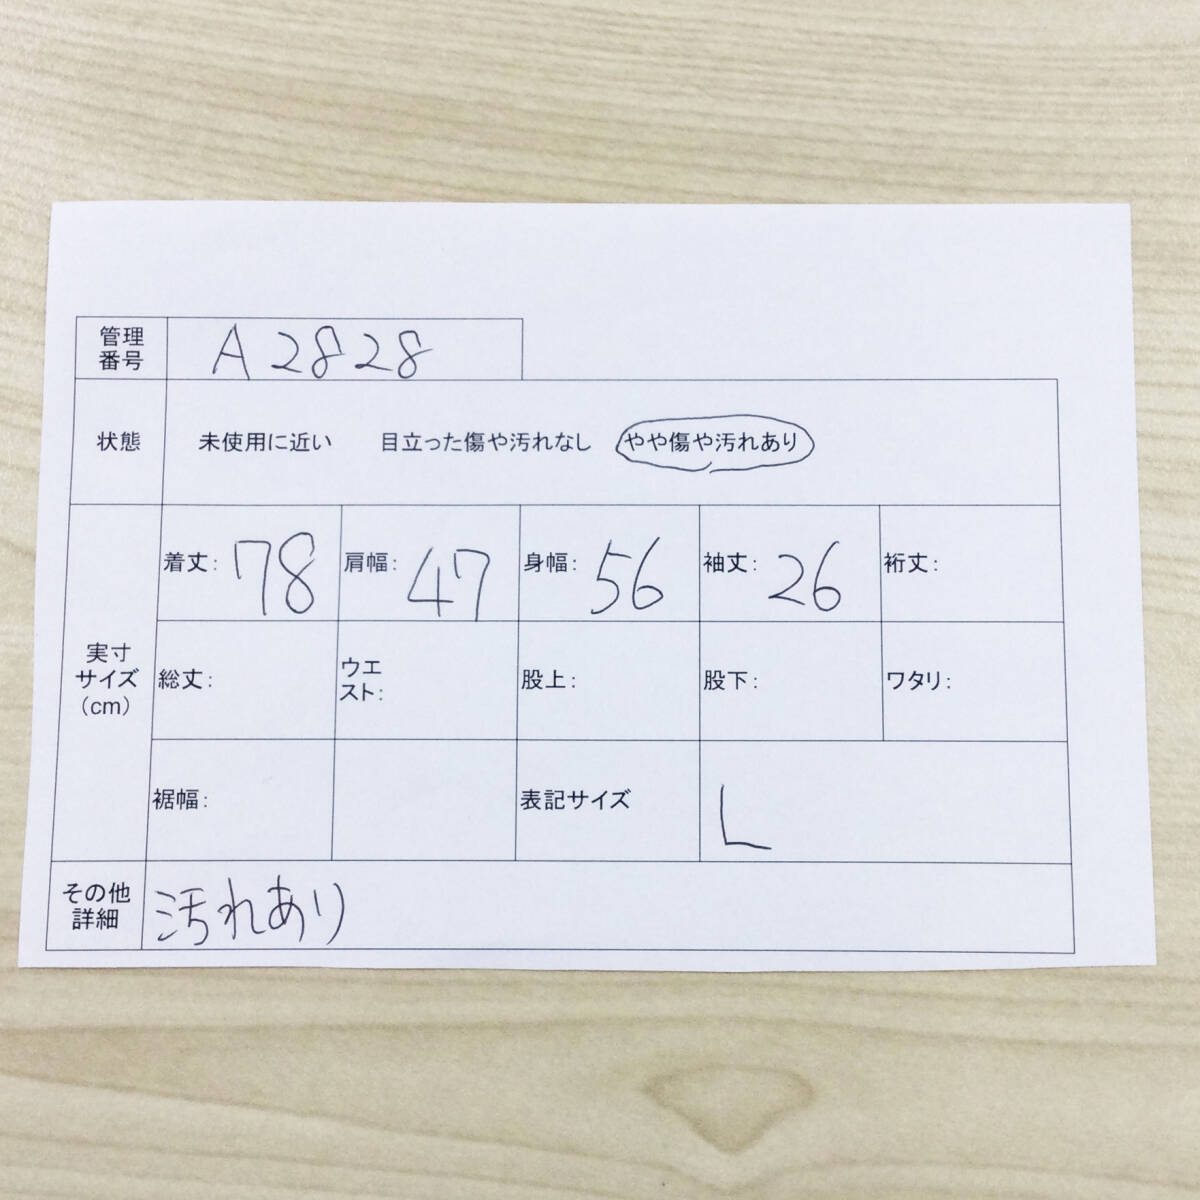 管理
番号
A2828
状態
未使用に近い 目立った傷や汚れなし やや傷や汚れあり
実寸
サイズ
(cm)
着丈: 78 肩幅: 47 身幅: 56 袖丈: 26 裄丈:
総丈: ウエ
スト: 股上: 股下: ワタリ:
裾幅: 表記サイズ L
その他
詳細
汚れあり